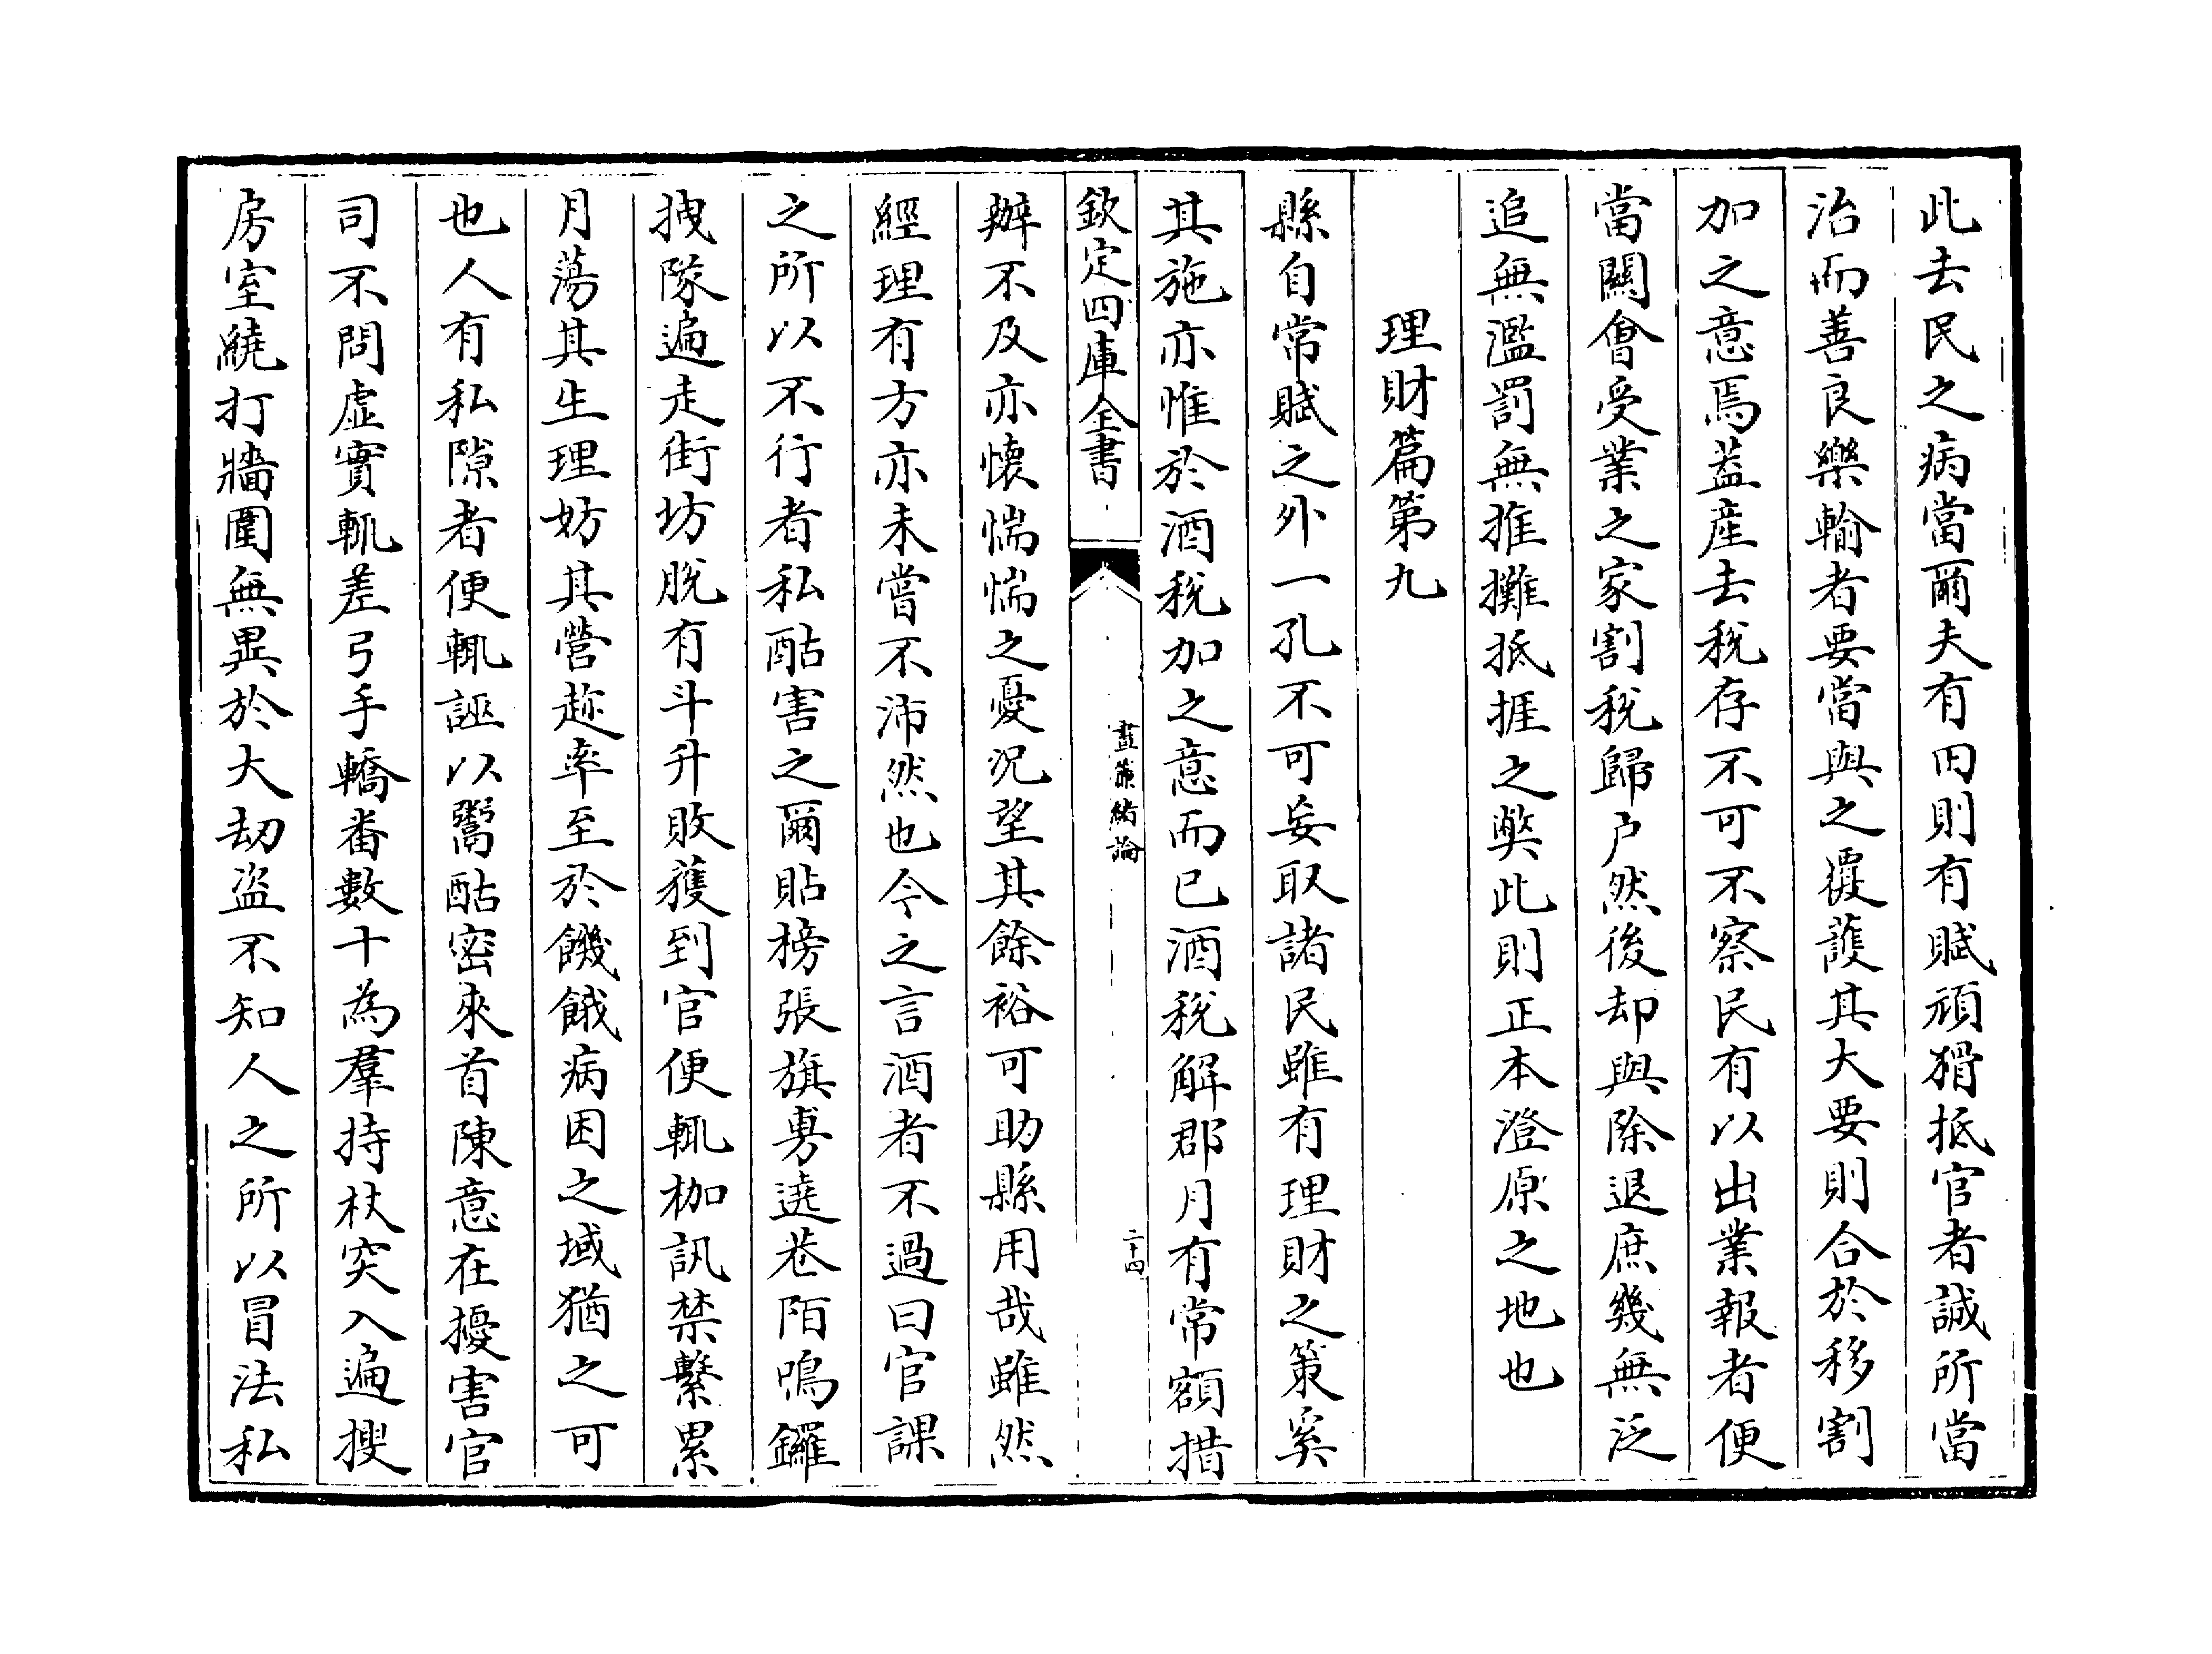 此去民之病當爾夫有田則有賦頑猾抵官者誠所當
治而善良樂輸者要當與之覆䕶其大要則合於移割
加之意焉葢産去稅存不可不察民有以出業報者便
當關會受業之家割稅歸户然後却與除退庶幾無泛
追無濫罰無推攤抵捱之獘此則正本澄原之地也
理財篇第九
縣自常賦之外一孔不可妄取諸民雖有理財之策奚
其施亦惟於酒稅加之意而已酒稅解郡月有常額措
欽定四庫全書
晝簾緒論
二十四
辦不及亦懷惴惴之憂况望其餘裕可助縣用哉雖然
經理有方亦未嘗不沛然也今之言酒者不過曰官課
之所以不行者私酤害之爾貼榜張旗勇遶巷陌鳴鑼
拽隊遍走街坊脫有斗升敗獲到官便輒枷訊禁繫累
月蕩其生理妨其營趂率至於饑餓病困之域猶之可
也人有私隙者便輒誣以鬻酤密來首陳意在擾害官
司不問虛實輒差弓手轎番數十為羣持杖突入遍搜
房室繞打牆圍無異於大刼盜不知人之所以冒法私